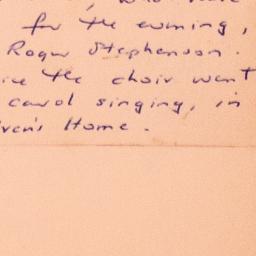 for the evening,
Roger Stephenson.
the choir went
carol singing, in
Home.